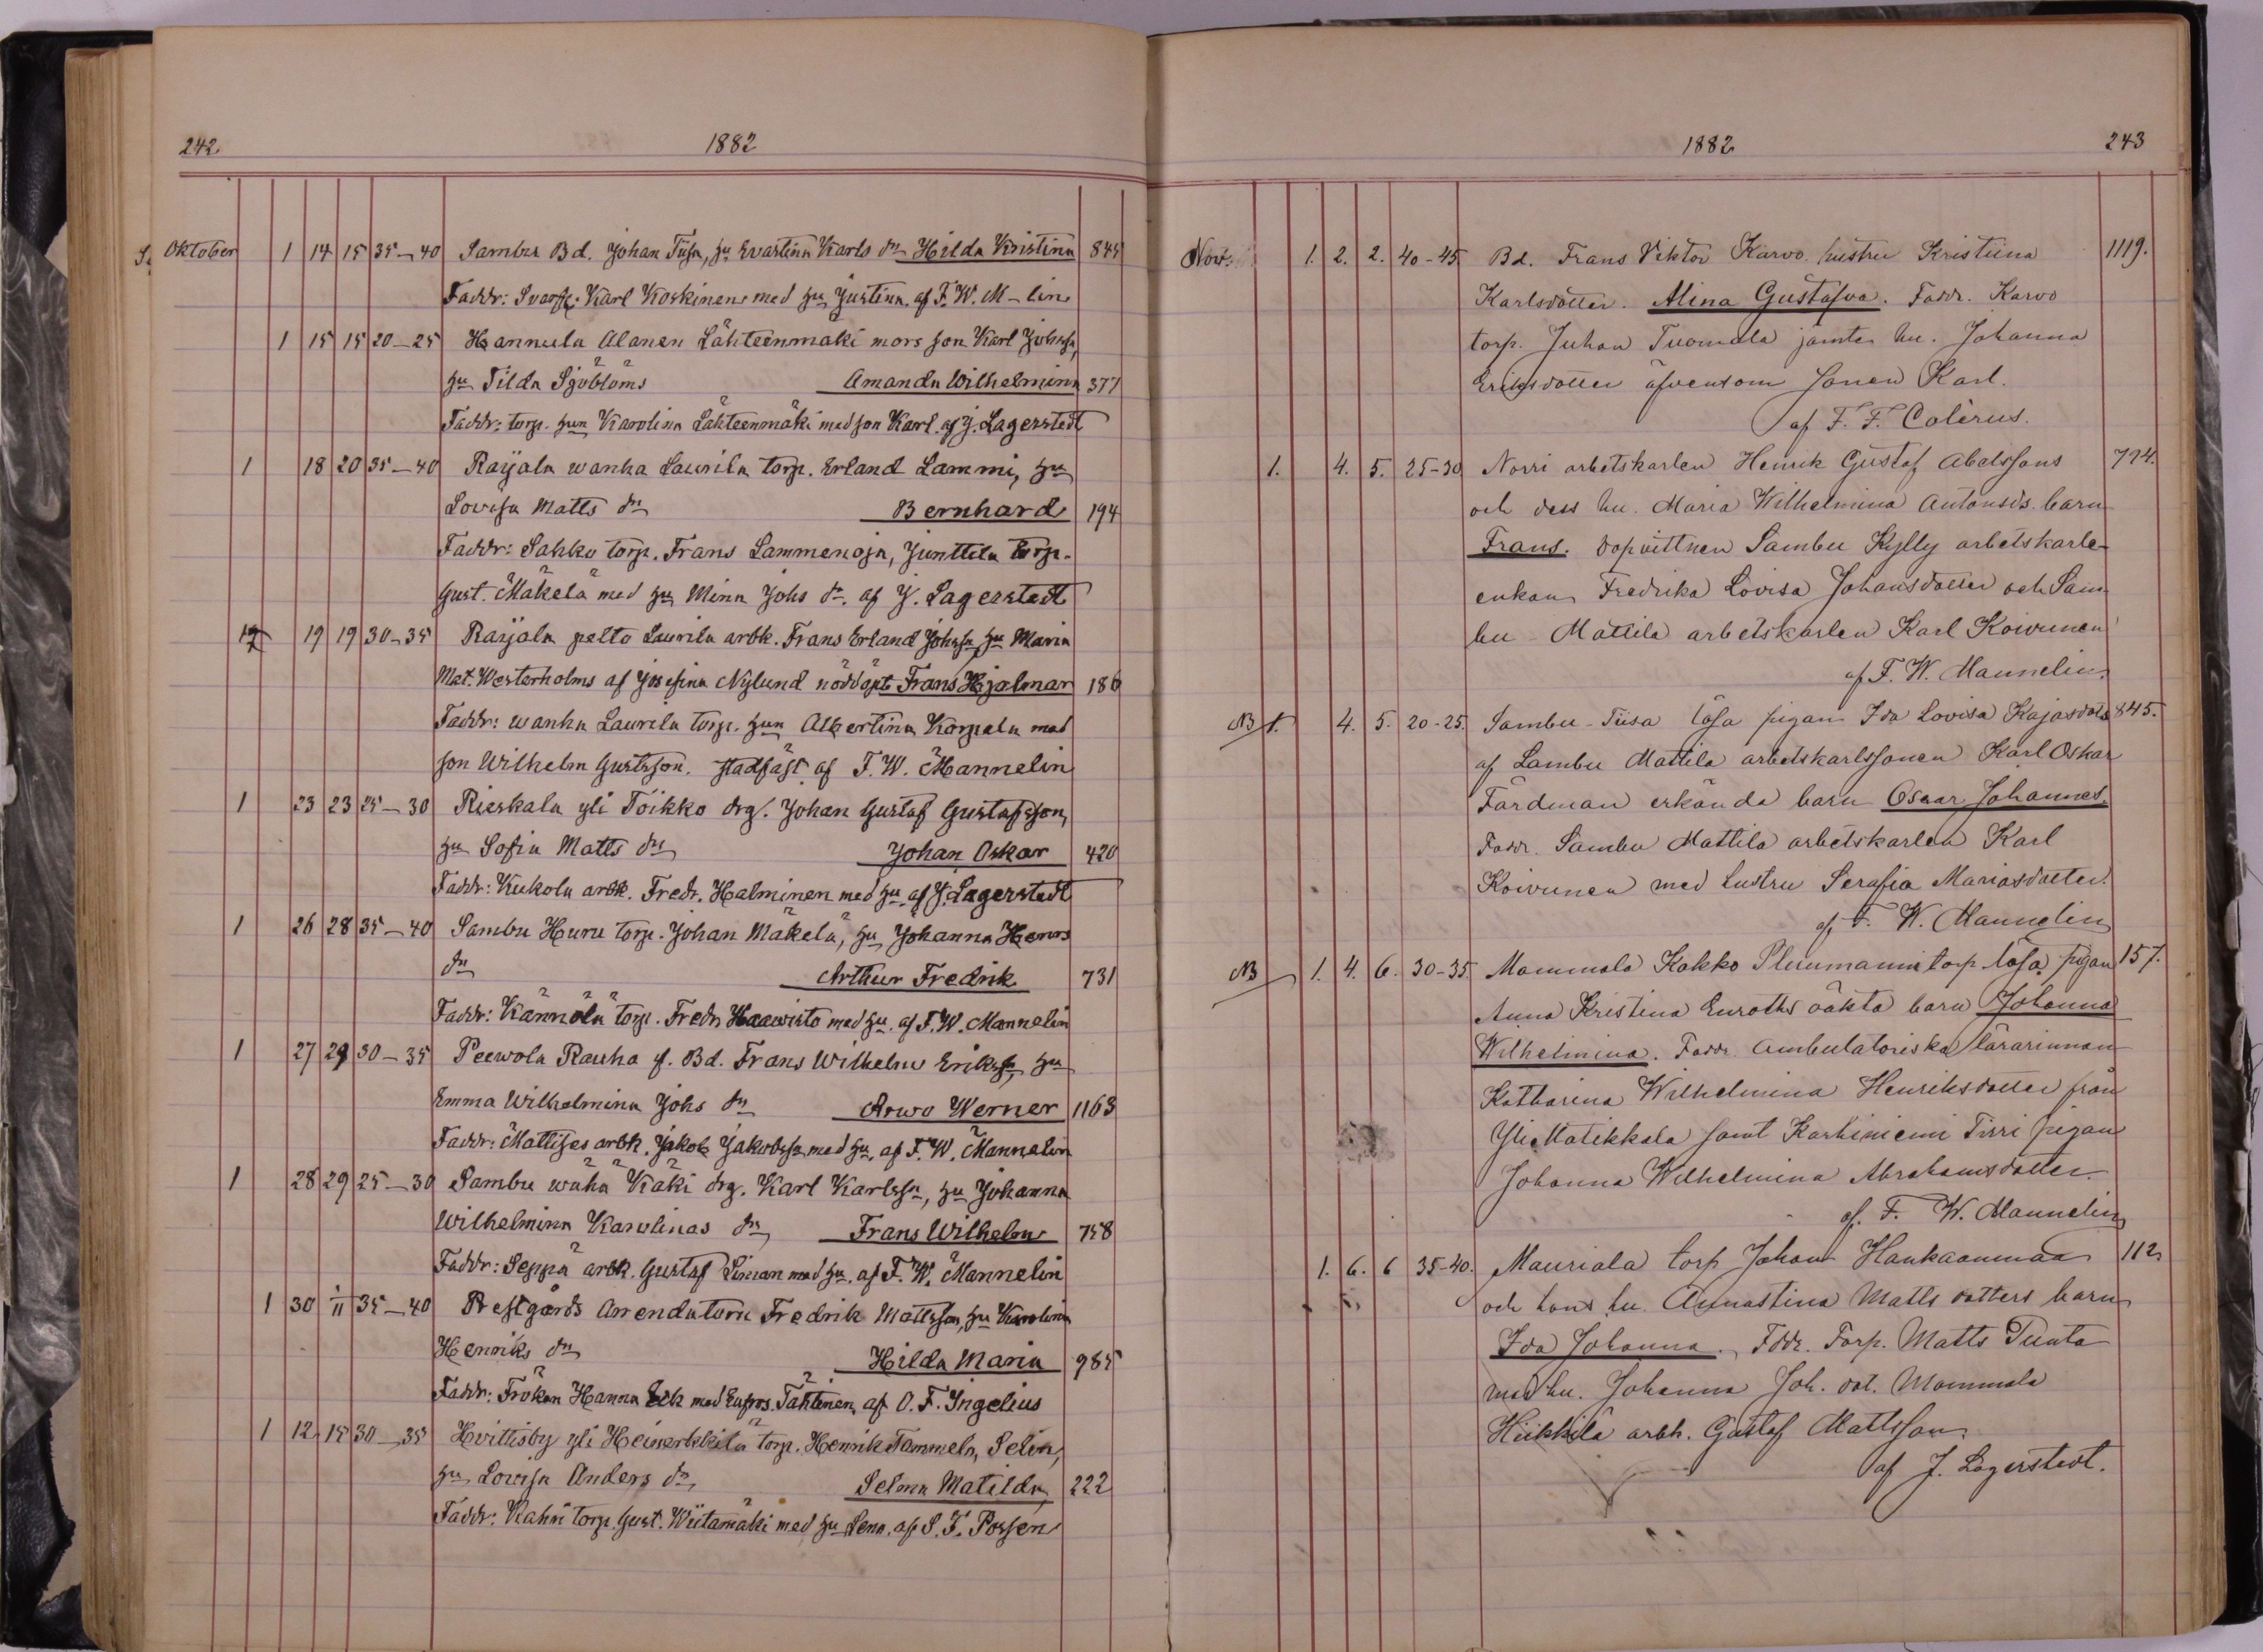 242 1882
S. Oktober 1 14 15 35-40 Sambu Bd. Johan Tiisa, hu Evastina Karls dr Hilda Kristina 845
Faddr: Svarfv. Karl Koskinen med hu Justina. af F. W. M-lin
1 15 15 20-25 Hannula Alanen Lähteenmäki mors son Karl Johnss.,
hu Tilda Sjöbloms Amanda Wilhelmina 377
Faddr: torp. hun Karolina Lähteenmäki med son Karl. af J. Lagerstedt
1 18 20 35-40 Raijala wanha Laurila torp. Erland Lammi, hu
Lovisa Matts dr Bernhard 194
Faddr: Sahko torp. Frans Lammenoja, Junttila torp.
Gust. Mäkelä med hu Mina Johs dr. af J. Lagerstedt
1 19 19 30-35 Raijala pelto Laurila arbk. Frans Erland Johnssn hu Maria
Mat. Westerholms af Josefina Nylund nöddöpt Frans Hjalmar 186
Faddr: wanha Laurila torp. hun Albertina Korpela med
son Wilhelm Gustsson. stadfäst af F. W. Mannelin
1 23 23 25-30 Rieskala yli Töikko drg. Johan Gustaf Gustafsson,
hu Sofia Matts dr Johan Oskar 420
Faddr: Kukola arbk. Fredr. Halminen med hu. af J. Lagerstedt
1 26 28 35-40 Sambu Huru torp. Johan Mäkelä, hu Johanna Henrs
dr Arthur Fredrik 731
Faddr: Kännölä torp. Fredr Haawisto med hu. af F. W. Mannelin
1 27 29 30-35 Peewola Rauha f. Bd. Frans Wilhelm Erikssn, hu
Emma Wilhelmina Johs dr Arwo Werner 1163
Faddr: Mattises arbk. Jakob Jakobssn med hu. af F. W. Mannelin
1 28 29 25-30 Sambu wähä Käki drg. Karl Karlssn, hu Johanna
Wilhelmina Karolinas dr Frans Wilhelm 758
Faddr: Seppä arbk. Gustaf Siman med hu. af F. W. Mannelin
1 30 1/11 35-40 Prestgårds Arrendatorn Fredrik Mattsson, hu Karolina
Henriks dr Hilda Maria 985
Faddr: Fröken Hanna Eek med Eufros. Tähtinen, af O. F. Ingelius
1 12 15 30-35 Hvittisby yli Heinerkkilä torp. Henrik Tammela, Selin,
hu Lovisa Anders dr, Selma Matilda, 222
Faddr: Kahri torp. Gust. Wiitamäki med hu Lena. af S. F. Possen
1882 243
Nov. 1. 2. 2. 40-45 Bd. Frans Viktor Karvo hustru Kristiina 1119.
Karlsdotter. Alina Gustafva. Faddr. Karvo
torp. Juhan Tuomola jämte hu. Johanna
Eriksdotter äfvensom sonen Karl.
af F. F. Colérus.
1. 4. 5. 25-30 Norri arbetskarlen Henrik Gustaf Abelssons 794.
och dess hu. Maria Wilhelmina Antonsds. barn
Frans. Dopvittnen Sambu Kylly arbetskarls-
enkan Fredrika Lovisa Johansdotter och Sam-
bu Mattila arbetskarlen Karl Koivunen
af F. W. Mannelin.
NB 1. 4. 5. 20-25. Sambu-Tiisa lösa pigan Ida Lovisa Kajasdots 845.
af Sambu Mattila arbetskarlssonen Karl Oskar
Färdman erkända barn Oscar Johannes.
Faddr. Sambu Mattila arbetskarlen Karl
Koivunen med hustru Serafia Mariasdotter.
af F. W. Mannelin
NB 1. 4. 6. 30-35. Mommola Kakko Pluumanni torp lösa pigan 157.
Anna Kristina Enroths oäkta barn Johanna
Wilhelmina. Faddr. Ambulatoriska lärarinnan
Katharina Wilhelmina Henriksdotter från
Yli Matikkala samt Karhiniemi Tirri pigan
Johanna Wilhelmina Abrahamsdotter.
af. F. W. Mannelin
1. 6. 6 35-40. Mauriala torp Johan Hankaanmaa 112
och hans hu. Annastina Matts dotters barn
Ida Johanna. Fddr. Torp. Matts Tunta
med hu. Johanna Joh. dot. Mommola
Hiikkilä arbk. Gustaf Mattsson.
af J. Lagerstedt.